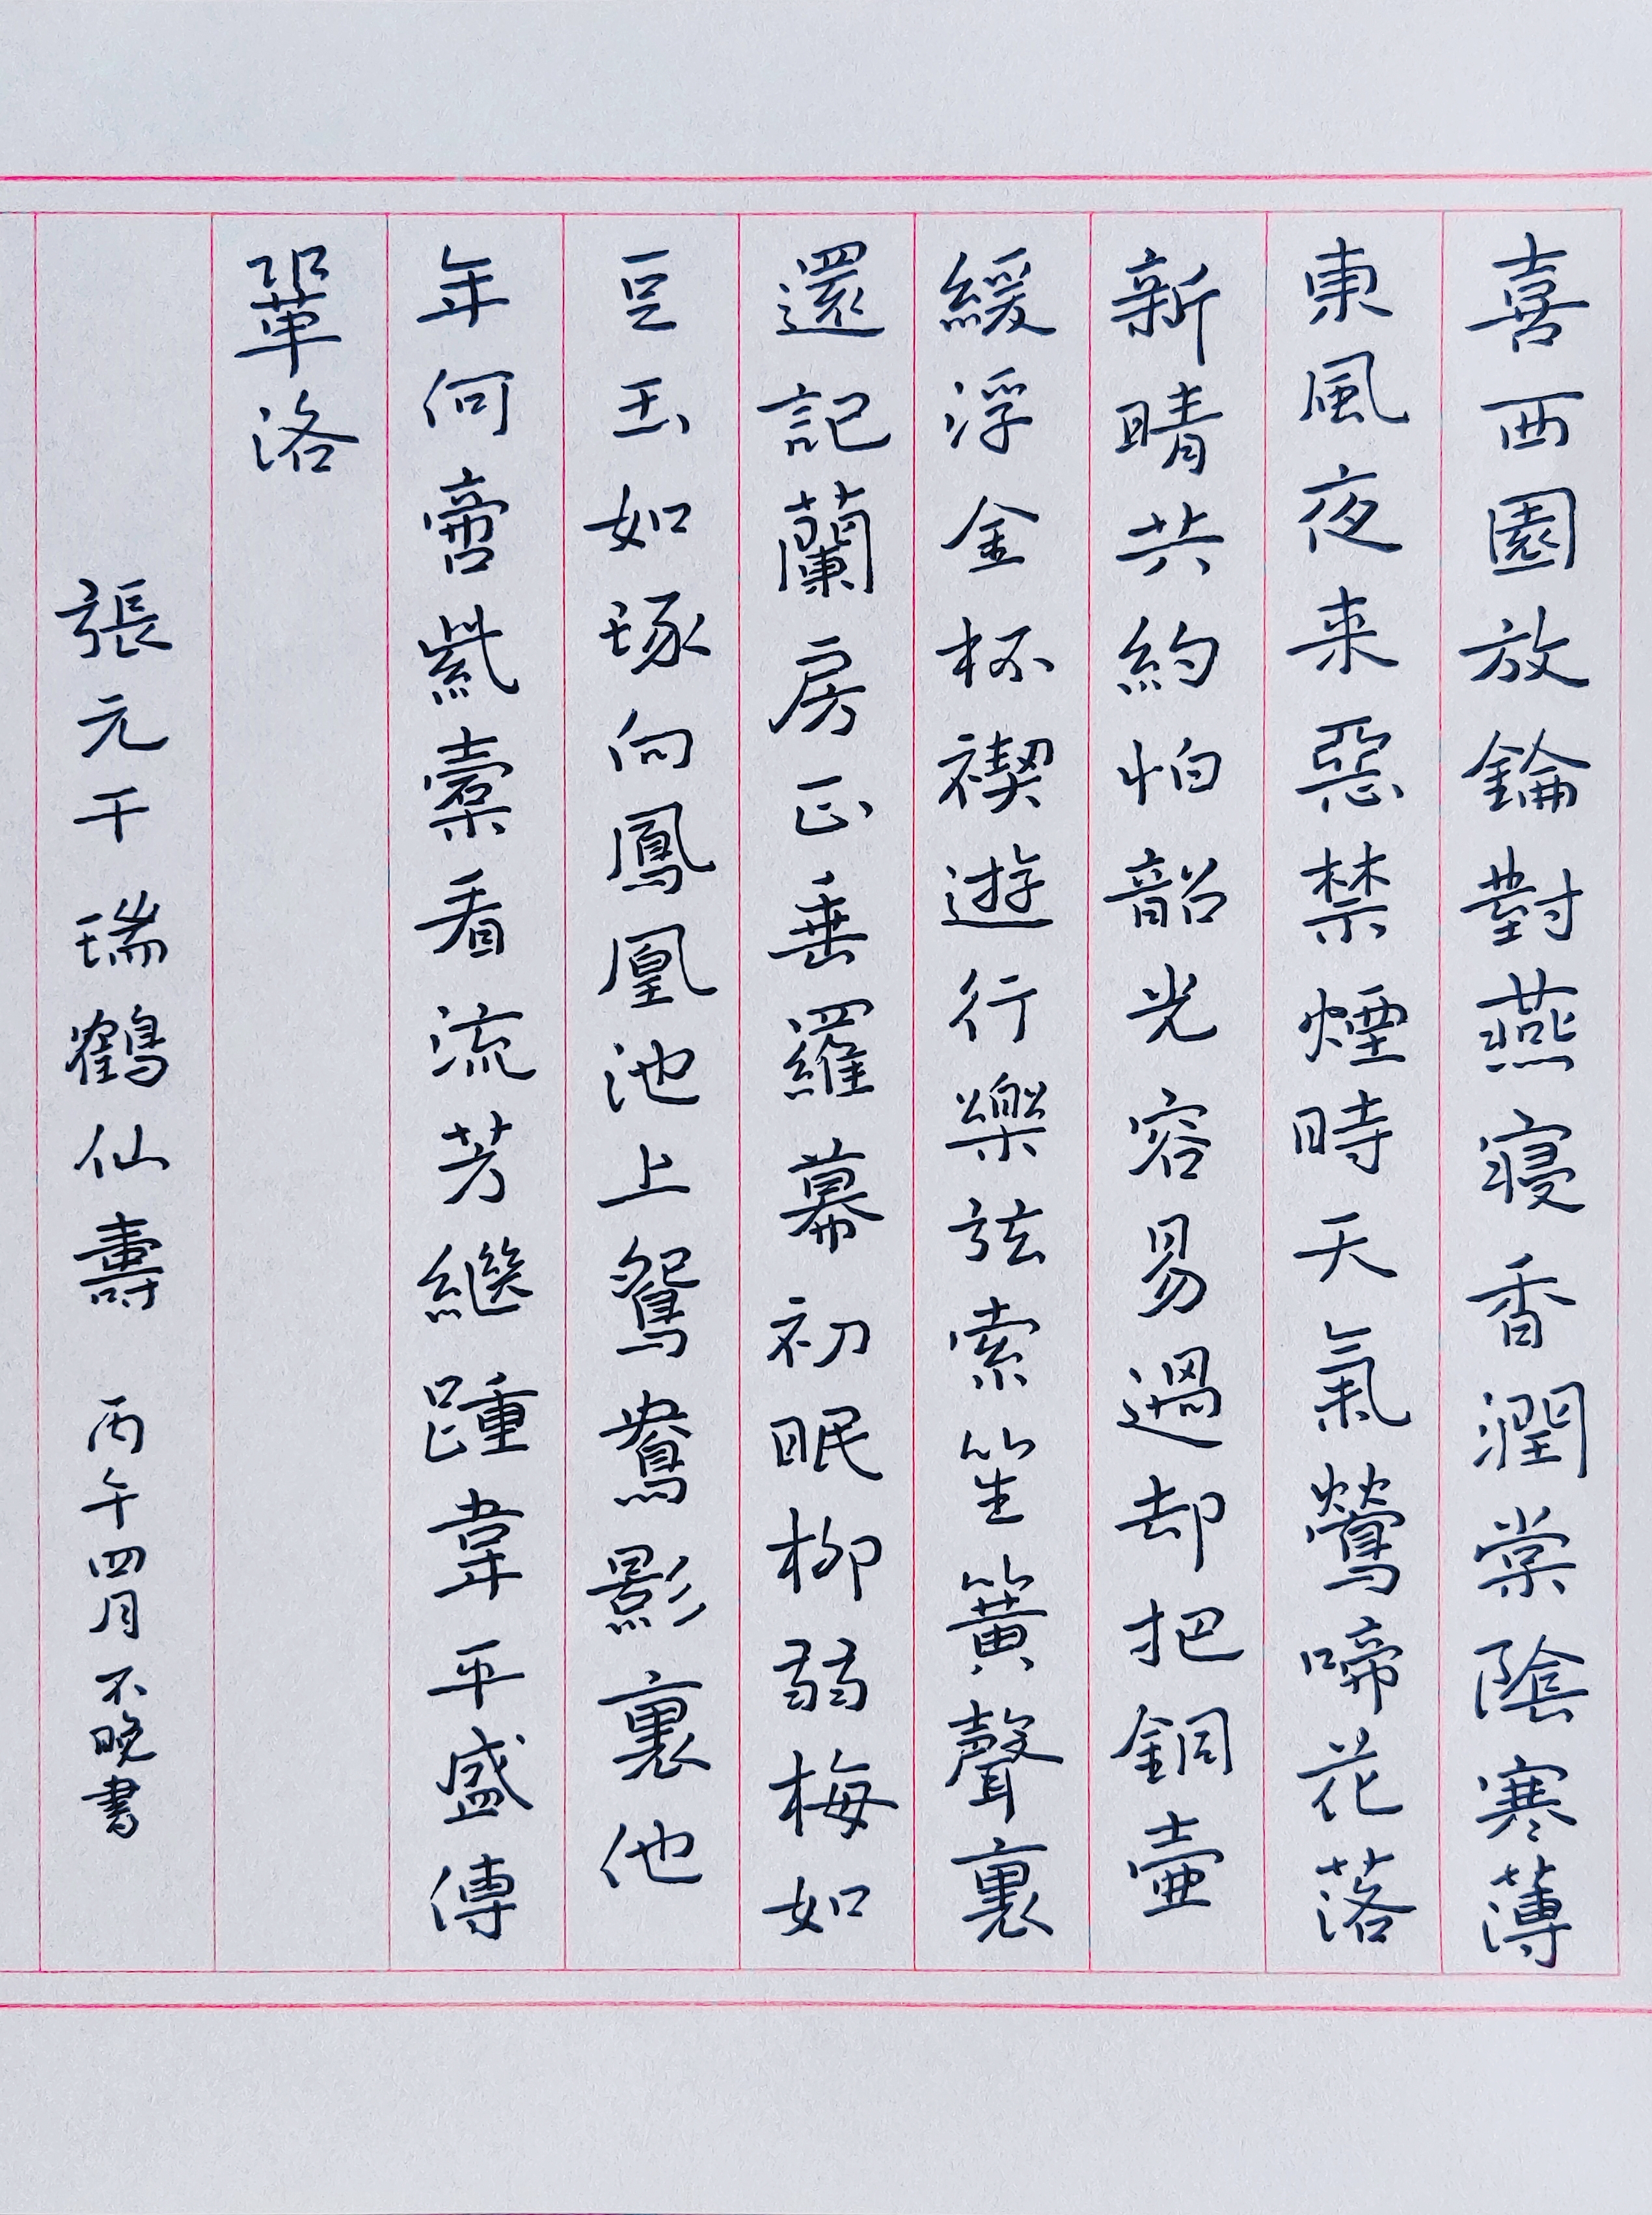 喜西園放鑰對燕寢香潤棠陰寒薄
東風夜来惡禁煙時天氣鶯啼花落
新晴共約怕韶光容易過却把銅壺
緩浮金杯禊遊行樂弦索笙簧聲裏
還記蘭房正垂羅幕初眠柳弱梅如
豆玉如琢向鳳凰池上鴛鴦影裏他
年何啻紫橐看流芳繼踵韋平盛傳
鞏洛
張元干 瑞鶴仙壽 丙午四月不晚書